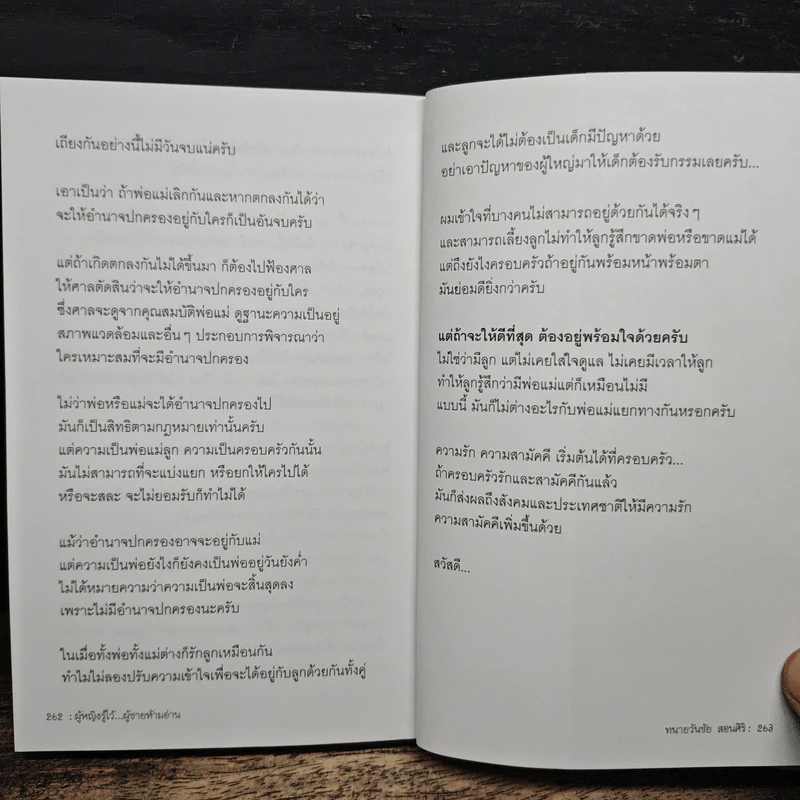 เถียงกันอย่างนี้ไม่มีวันจบแน่ครับ
เอาเป็นว่า ถ้าพ่อแม่เลิกกันและหากตกลงกันได้ว่า
จะให้อำนาจปกครองอยู่กับใครก็เป็นอันจบครับ
แต่ถ้าเกิดตกลงกันไม่ได้ขึ้นมา ก็ต้องไปฟ้องศาล
ให้ศาลตัดสินว่าจะให้อำนาจปกครองอยู่กับใคร
ซึ่งศาลจะดูจากคุณสมบัติพ่อแม่ ดูฐานะความเป็นอยู่
สภาพแวดล้อมและอื่นๆ ประกอบการพิจารณาว่า
ใครเหมาะสมที่จะมีอำนาจปกครอง
ไม่ว่าพ่อหรือแม่จะได้อำนาจปกครองไป
มันก็เป็นสิทธิตามกฎหมายเท่านั้นครับ
แต่ความเป็นพ่อแม่ลูก ความเป็นครอบครัวกันนั้น
มันไม่สามารถที่จะแบ่งแยก หรือยกให้ใครไปได้
หรือจะสละ จะไม่ยอมรับก็ทำไม่ได้
แม้ว่าอำนาจปกครองอาจจะอยู่กับแม่
แต่ความเป็นพ่อยังไงก็ยังคงเป็นพ่ออยู่วันยังค่ำ
ไม่ได้หมายความว่าความเป็นพ่อจะสิ้นสุดลง
เพราะไม่มีอำนาจปกครองนะครับ
ในเมื่อทั้งพ่อทั้งแม่ต่างก็รักลูกเหมือนกัน
ทำไมไม่ลองปรับความเข้าใจเพื่อจะได้อยู่กับลูกด้วยกันทั้งคู่
262 : ผู้หญิงรู้ไว้...ผู้ชายห้ามอ่าน
และลูกจะได้ไม่ต้องเป็นเด็กมีปัญหาด้วย
อย่าเอาปัญหาของผู้ใหญ่มาให้เด็กต้องรับกรรมเลยครับ...
ผมเข้าใจที่บางคนไม่สามารถอยู่ด้วยกันได้จริงๆ
และสามารถเลี้ยงลูกไม่ทำให้ลูกรู้สึกขาดพ่อหรือขาดแม่ได้
แต่ถึงยังไงครอบครัวถ้าอยู่กันพร้อมหน้าพร้อมตา
มันย่อมดียิ่งกว่าครับ
แต่ถ้าจะให้ดีที่สุด ต้องอยู่พร้อมใจด้วยครับ
ไม่ใช่ว่ามีลูก แต่ไม่เคยใส่ใจดูแล ไม่เคยมีเวลาให้ลูก
ทำให้ลูกรู้สึกว่ามีพ่อแม่แต่ก็เหมือนไม่มี
แบบนี้ มันก็ไม่ต่างอะไรกับพ่อแม่แยกทางกันหรอกครับ
ความรัก ความสามัคคี เริ่มต้นได้ที่ครอบครัว...
ถ้าครอบครัวรักและสามัคคีกันแล้ว
มันก็ส่งผลถึงสังคมและประเทศชาติให้มีความรัก
ความสามัคคีเพิ่มขึ้นด้วย
สวัสดี...
ทนายวันชัย สอนศิริ : 263